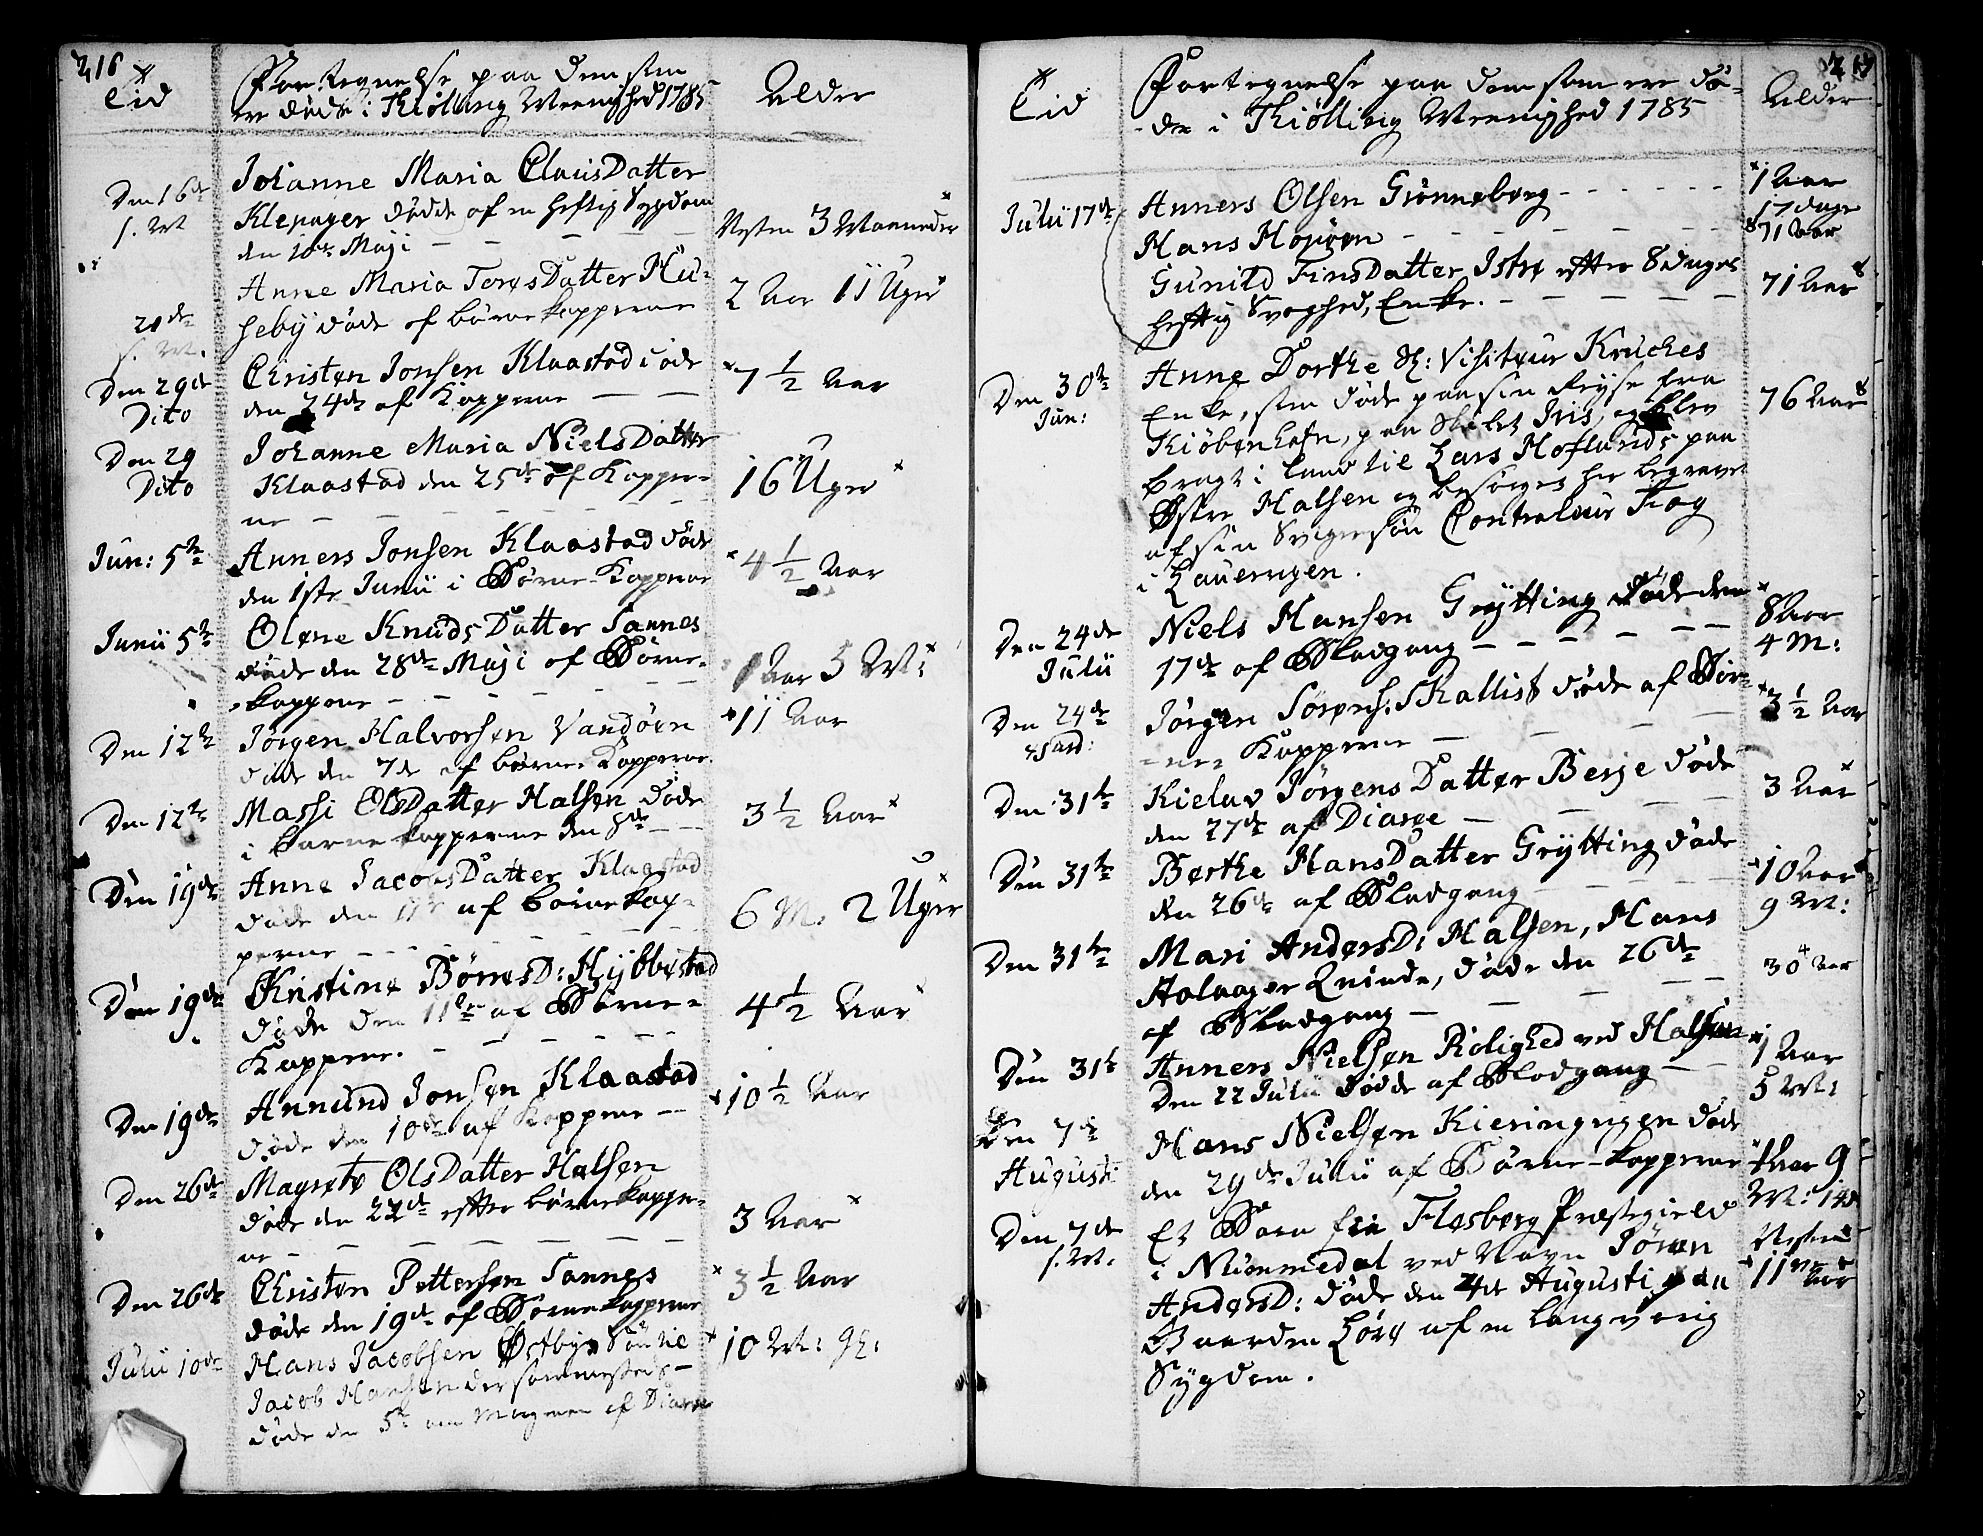 216
Tid
Fortegnelse paa dem som
ere døde i Kiølling Meenighed 1785
Alder
Den 16de
s. M
Johanne Maria ClausDatter
Klepager døde af en heftig Sygdom
den 10de Maji
Nesten 3 Maaneder
21de
s. M.
Anne Maria ToresDatter Hu-
seby døde af børnekopperne
2 Aar 11 Uger
Den 29de
Dito
Christen Jonsen Klaastad døde
den 24de af Kopperne
7 1/2 Aar
Den 29
Dito
Johanne Maria NielsDatter
Klaastad den 25de af Kopper-
ne
16 Uger
Jun: 5te
Anners Jonsen Klaastad døde
den 1ste Junii i Børne-Kopperne
4 1/2 Aar
Junii 5te
Olene KnudsDatter Sannes
døde den 28de Maji af Børne-
kopperne
1 Aar 5 M:
Den 12te
Jørgen Halvorsen Vandøen
døde den 7de af børne-Kopperne
11 Aar
Den 12te
Massi OlsDatter Halsen døde
i Børnekopperne den 8de
3 1/2 Aar
Den 19de
Anne JacobsDatter Klaastad
døde den 11te af børnekop-
perne
6 M: 2 Uger
Den 19de
Kristine BørresD: Hybbestad
døde den 11te af Børne-
Kopperne.
4 1/2 Aar
Den 19de
Annund Jonsen Klaastad
døde den 10de af Kopperne
10 1/2 Aar
Den 26de
Magrete OlsDatter Halsen
døde den 22de efter børnekopper-
ne
3 Aar
Den 26de
Christen Pettersen Sannes
døde den 19de af Børnekopperne
3 1/2 Aar
Julii 10de
Hans Jacobsen Østbye Søn til
Jacob Hansen dersammesteds
døde den 5te om Morgenen af Diaree
10 M:
217
Tid
Fortegnelse paa dem som ere dø-
de i Kiølling Meenighed 1785
Alder
Julii 17de
Anners Olsen Grønneberg
1 Aar
17 dage
Hans Hojøen
71 Aar
Gunild FinsDatter Istre efter 8 dages
heftig Svaghed, Enke.
71 Aar
Den 30te
Jun:
Anne Dorthe Sl: Visiteur Kruckes
Enke, som døde paa sin Reyse fra
Kiøbenhafn, paa Skibet Iris, og blev
bragt i land til Lars Hoflunds paa
Østre Halsen og besørges her begravet
af sin Svigersøn Contraleur Krog
i Laurvigen.
76 Aar
Den 24de
Julii
Niels Hansen Grytting døde den
17de af Blodgang
8 Aar
4 M:
Den 24de
Jørgen Sørens: Skallist døde af Bør-
ne-Kopperne
3 1/2 Aar
Den 31te
Kielav JørgensDatter Berje døde
den 27de af Diaree
3 Aar
Den 31te
Berthe HansDatter Grytting døde
den 26de af Blodgang
10 Aar
9 M:
Den 31te
Mari AndersD: Halsen, Hans
Holvager Qvinde, døde den 26de
af Blodgang
30 Aar
Den 31te
Anners Nielsen Rolighed ved Halsen
Den 22 Julii døde af Blodgang
1 Aar
5 M:
Den 7de
Augusti
Hans Nielsen Kieringvigen døde
den 29de Julii af Børne-kopperne
Aar 9
M:
Den 7de
s. M.
Et Barn fra Flesberg Præstegield
i Nummedal ved Navn Jøran
AndersD: døde den 4de Augusti paa
Gaarden Løve af en langvarig
Sygdom.
Nesten
11 Aar